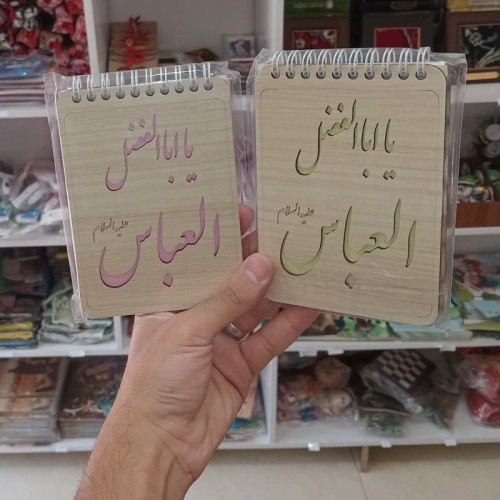 یا ابا الفضل
العباس
علیه السلام
یا ابا الفضل
العباس
علیه السلام